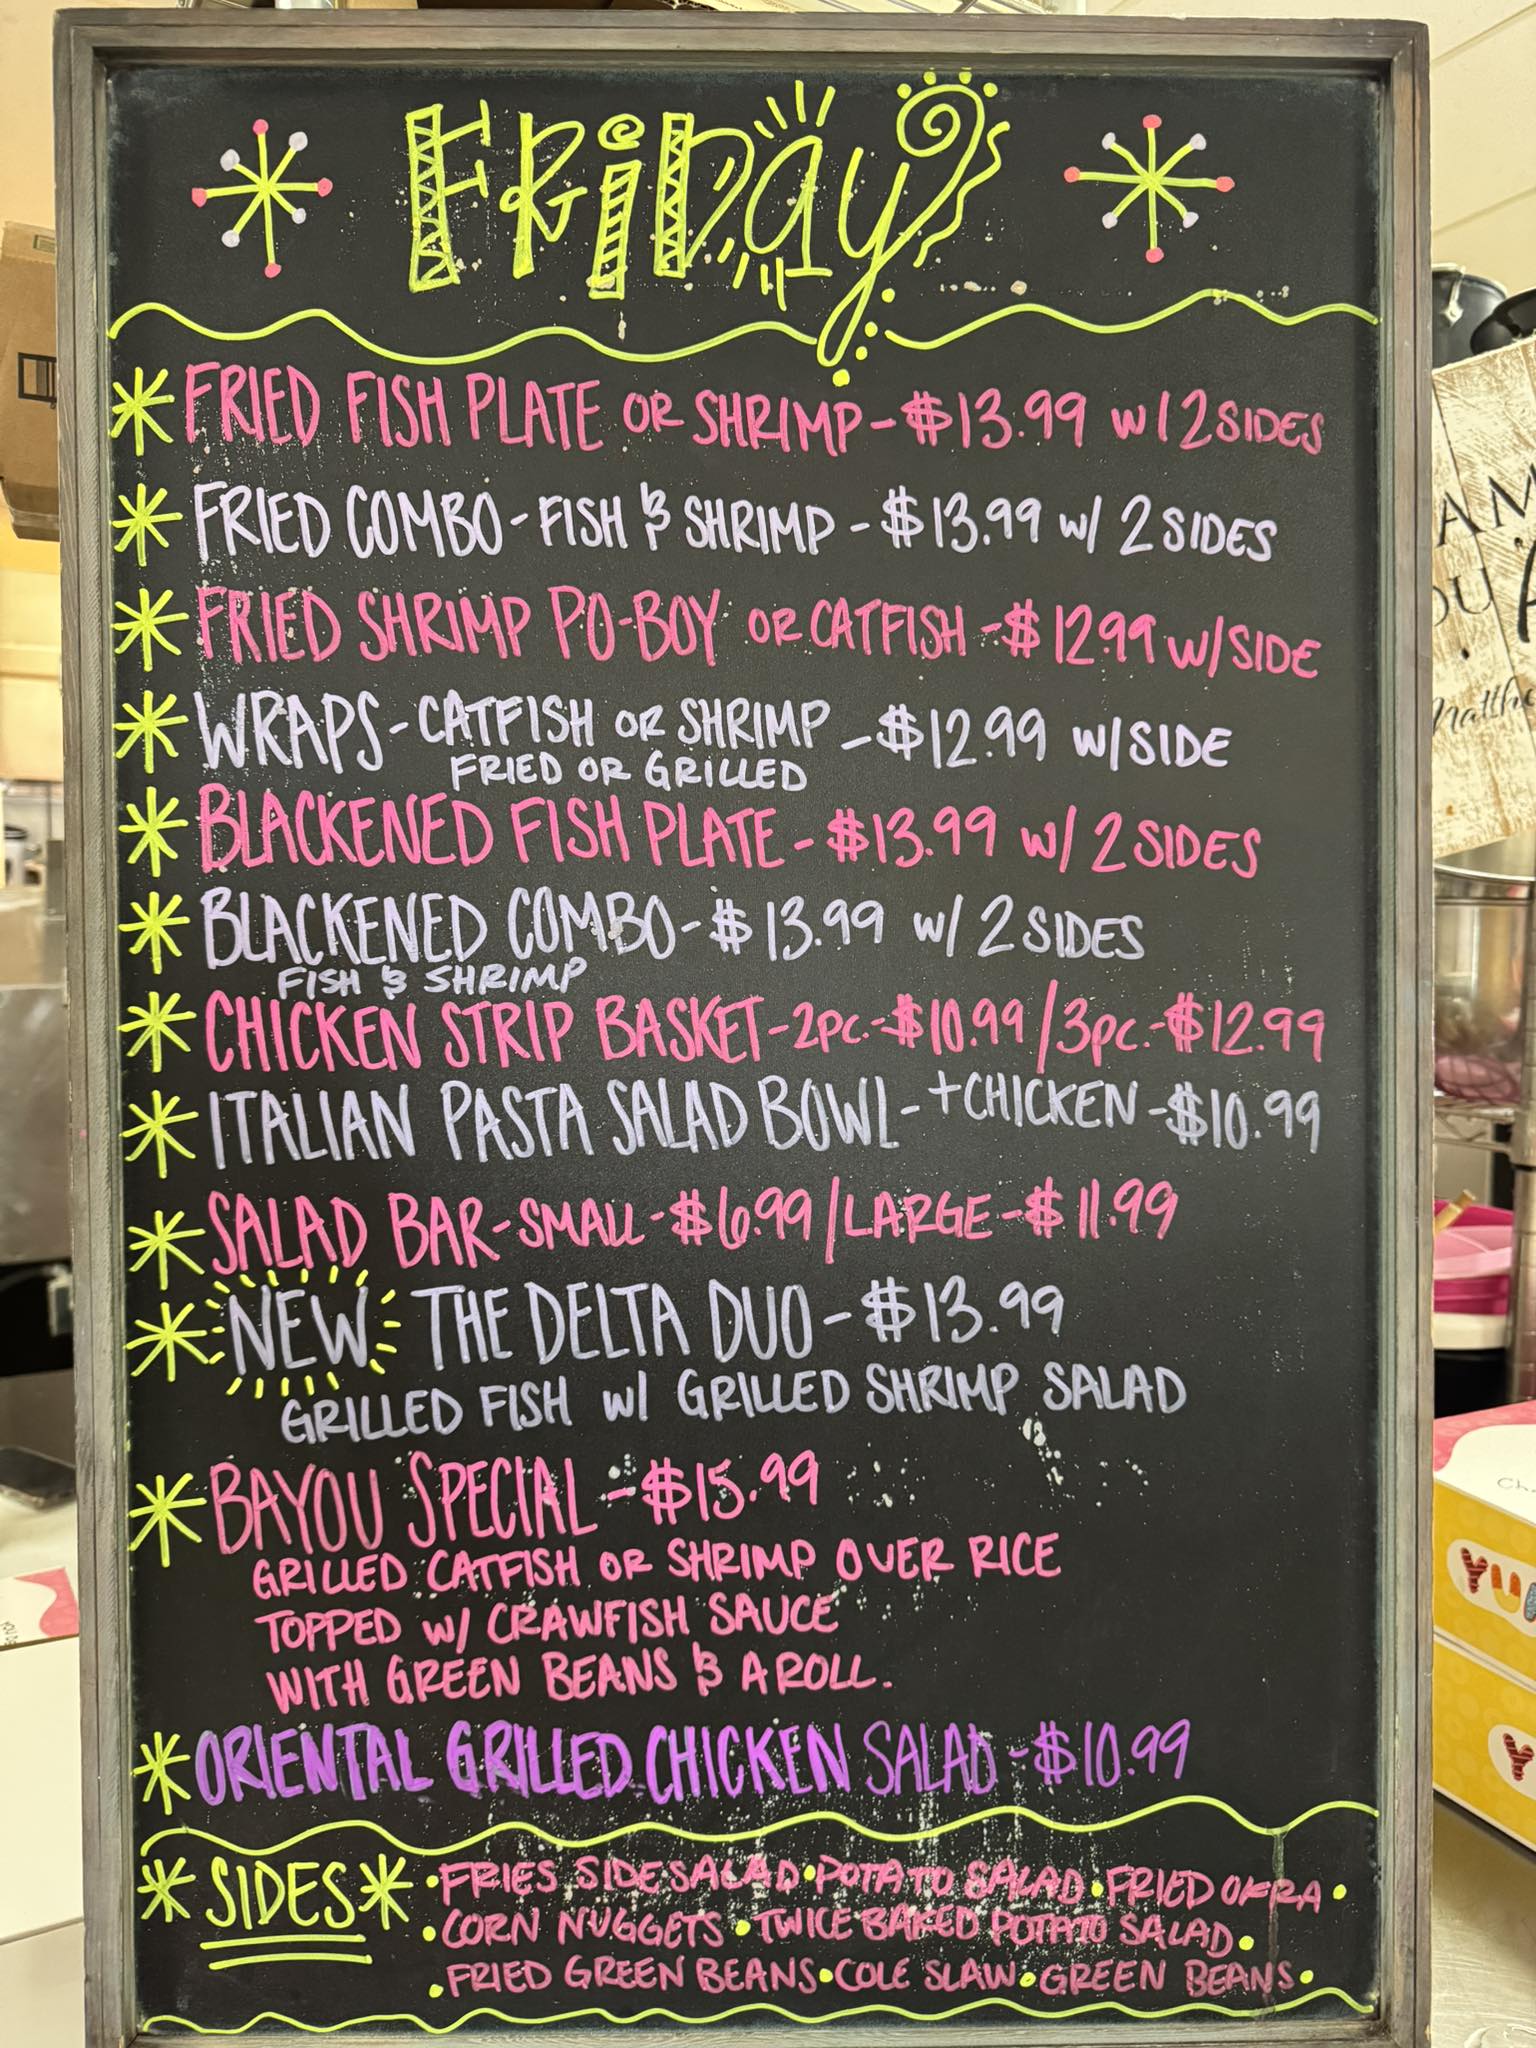 FRiDay
FRIED FISH PLATE OR SHRIMP - $13.99 w/ 2 SIDES
FRIED COMBO - FISH & SHRIMP - $13.99 w/ 2 SIDES
FRIED SHRIMP PO-BOY OR CATFISH - $12.99 w/SIDE
WRAPS - CATFISH OR SHRIMP - $12.99 w/SIDE
FRIED OR GRILLED
BLACKENED FISH PLATE - $13.99 w/ 2 SIDES
BLACKENED COMBO - $13.99 w/ 2 SIDES
FISH & SHRIMP
CHICKEN STRIP BASKET - 2pc. - $10.99 / 3pc. - $12.99
ITALIAN PASTA SALAD BOWL - + CHICKEN - $10.99
SALAD BAR - SMALL - $6.99 / LARGE - $11.99
NEW THE DELTA DUO - $13.99
GRILLED FISH w/ GRILLED SHRIMP SALAD
BAYOU SPECIAL - $15.99
GRILLED CATFISH OR SHRIMP OVER RICE
TOPPED w/ CRAWFISH SAUCE
WITH GREEN BEANS & A ROLL.
ORIENTAL GRILLED CHICKEN SALAD - $10.99
SIDES
• FRIES SIDE SALAD • POTATO SALAD • FRIED OKRA •
• CORN NUGGETS • TWICE BAKED POTATO SALAD •
• FRIED GREEN BEANS • COLE SLAW • GREEN BEANS •